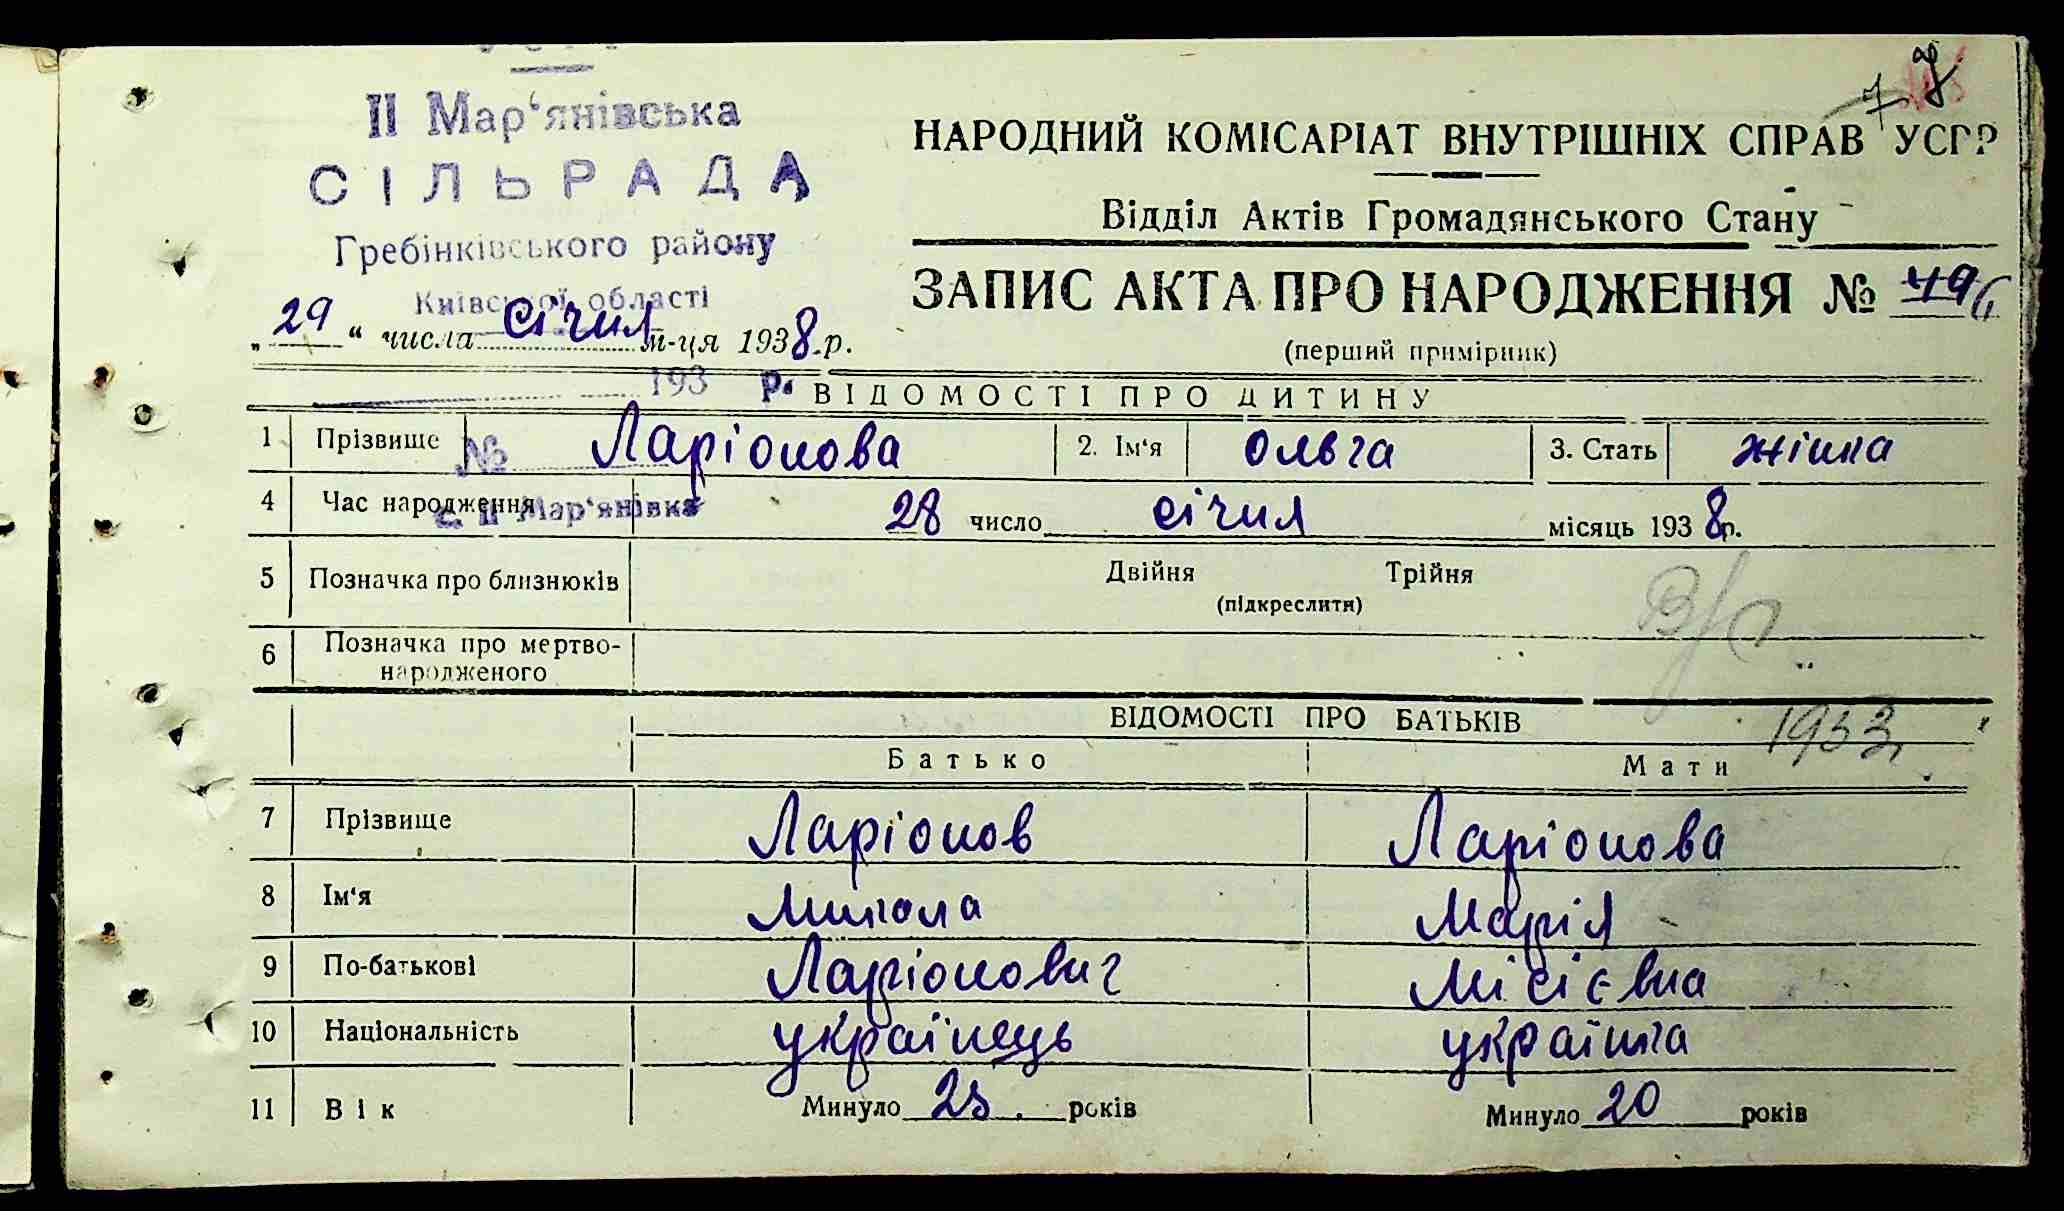 II Мар‘янівська
СІЛЬРАДА
Гребінківського району
Київської області
„29“ числа січня м-ця 1938 р.
193 р.
№
с. II Мар‘янівка
7 8
НАРОДНИЙ КОМІСАРІАТ ВНУТРІШНІХ СПРАВ УСРР
Відділ Актів Громадянського Стану
ЗАПИС АКТА ПРО НАРОДЖЕННЯ №
(перший примірник)
ВІДОМОСТІ ПРО ДИТИНУ
1 Прізвище Ларіонова 2. Ім‘я Ольга 3. Стать жінка
4 Час народження 28 число січня місяць 1938 р.
5 Позначка про близнюків Двійня Трійня
(підкреслити)
6 Позначка про мертво-
народженого
ВІДОМОСТІ ПРО БАТЬКІВ
1953
Батько Мати
7 Прізвище Ларіонов Ларіонова
8 Ім‘я Микола Марія
9 По-батькові Ларіонович Місієвна
10 Національність українець українка
11 Вік Минуло 25 років Минуло 20 років